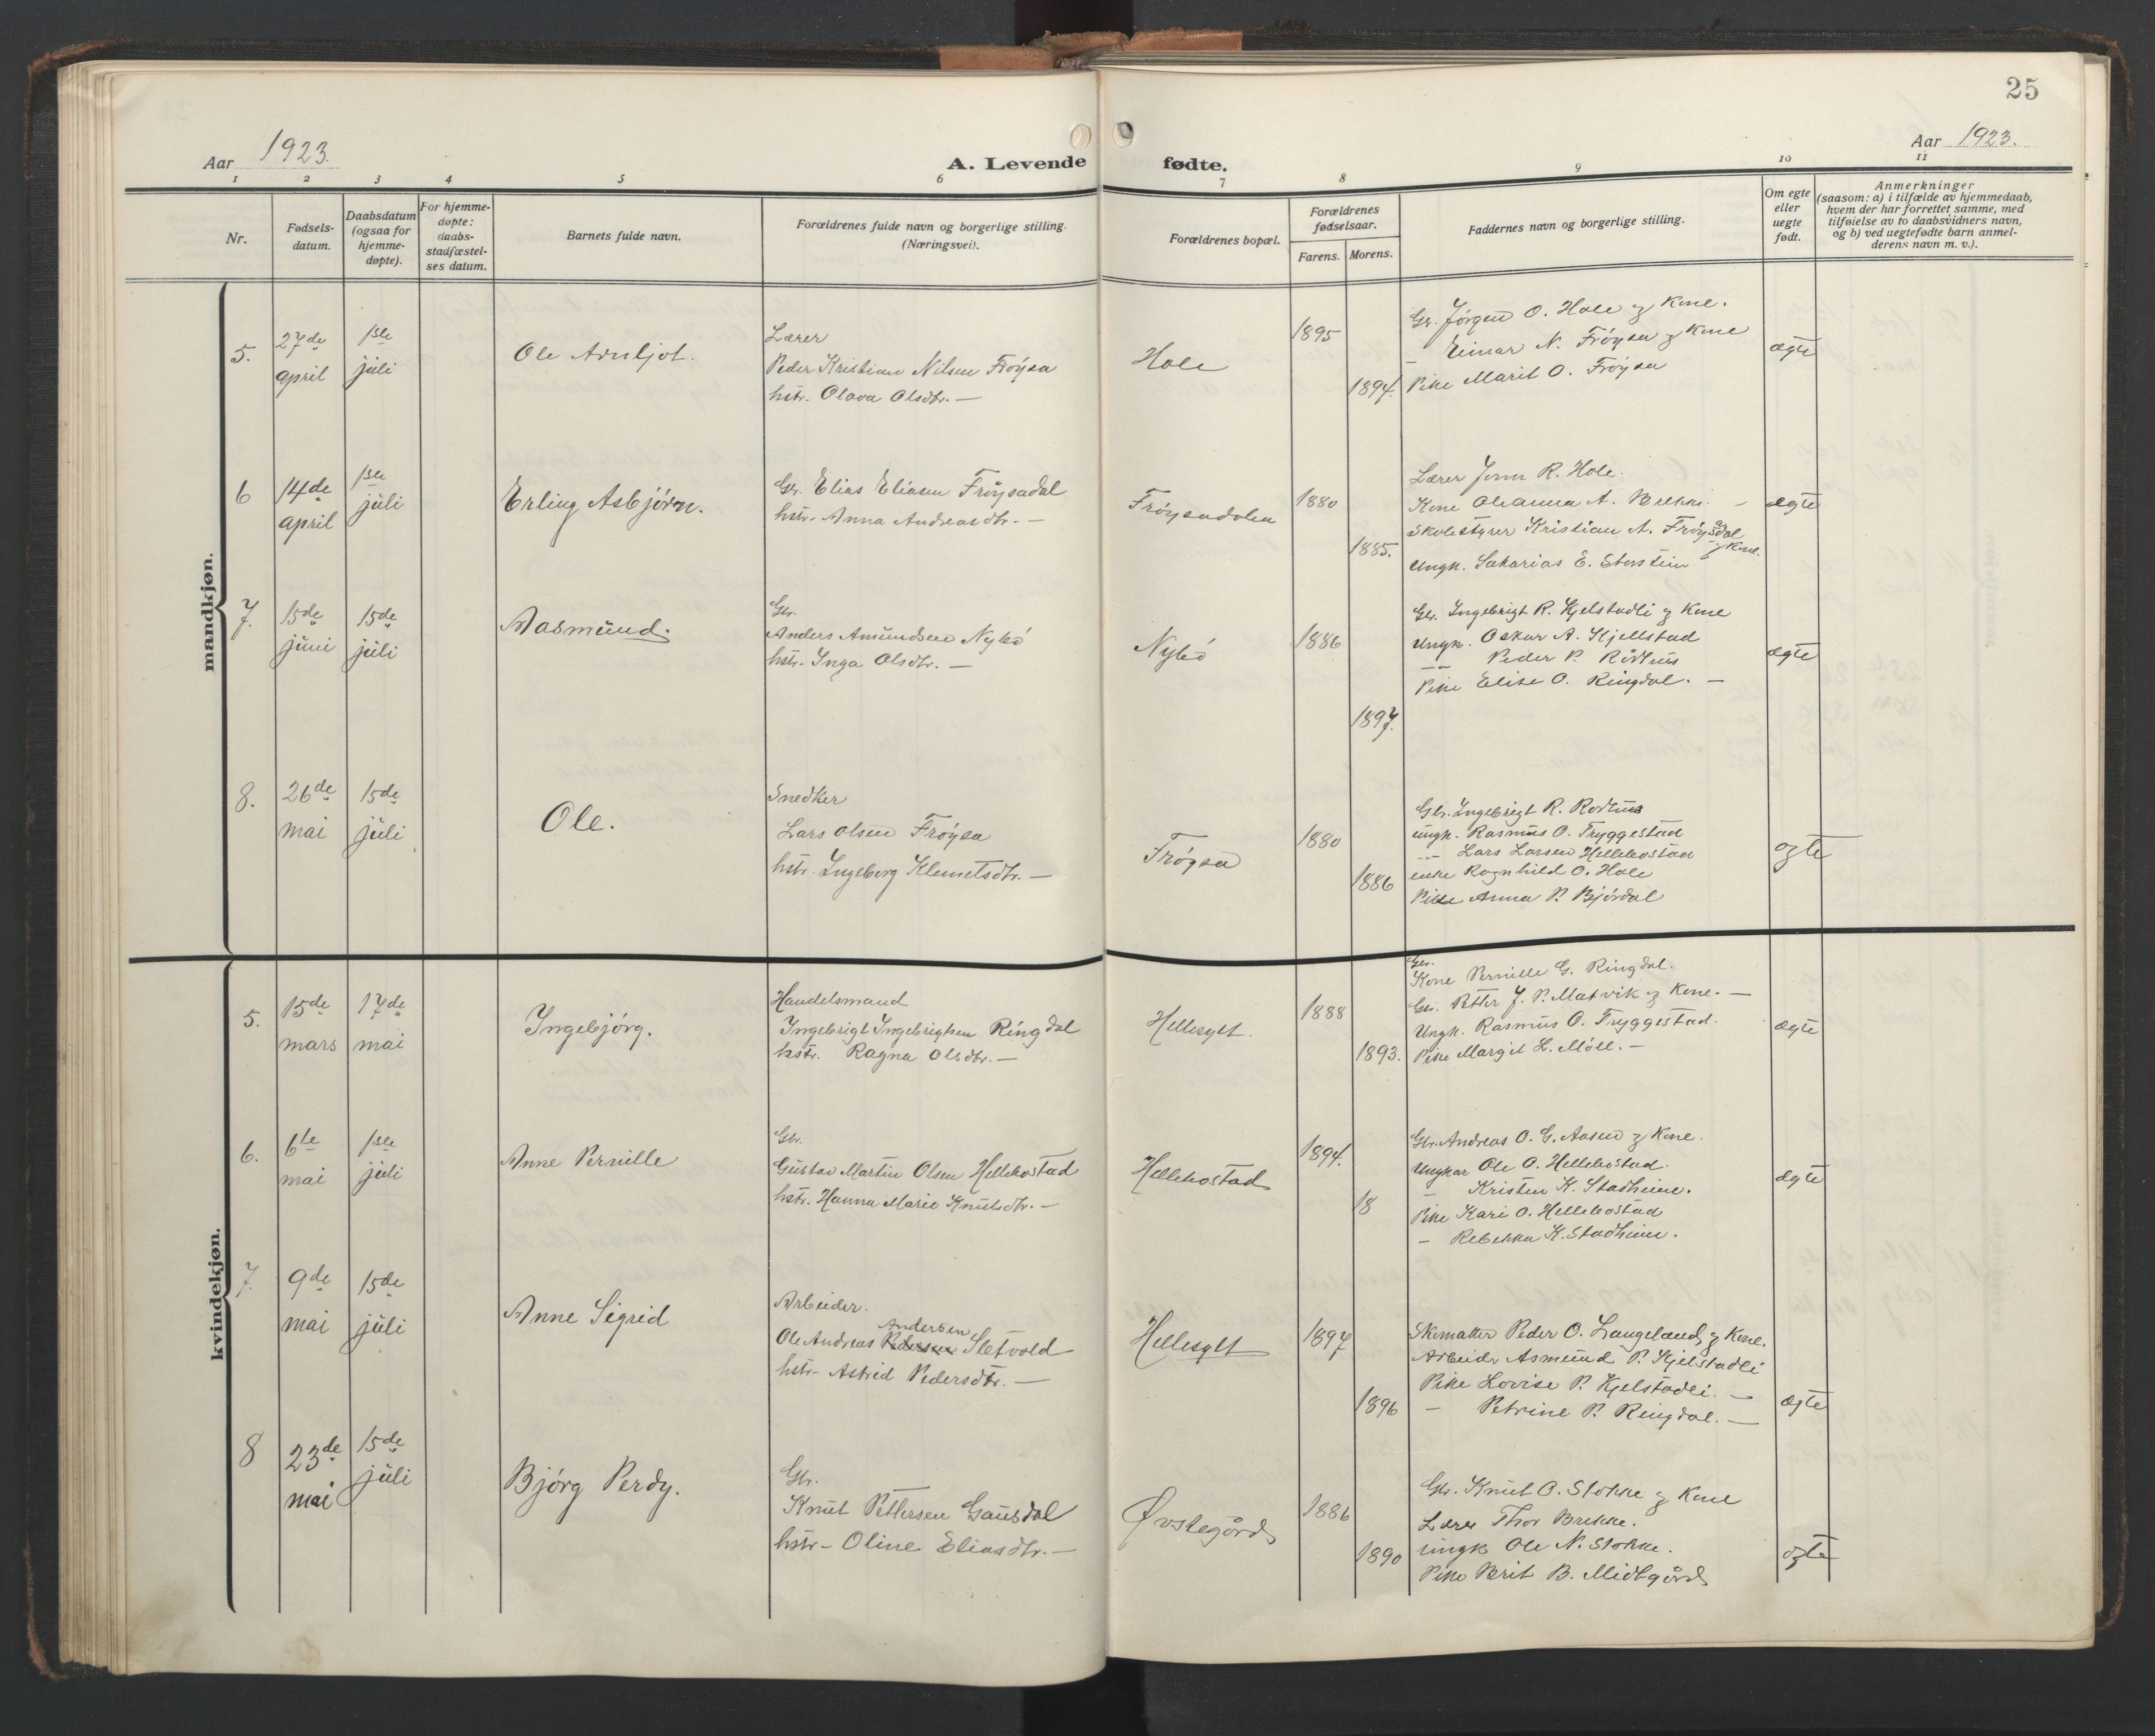 25
Aar 1923.
A. Levende fødte.
Aar 1923.
1 2 3 4 5 6 7 8 9 10 11
Nr.
Fødsels-
datum.
Daabsdatum
(ogsaa for
hjemme-
døpte).
For hjemme-
døpte:
daabs-
stadfæstel-
ses datum.
Barnets fulde navn.
Forældrenes fulde navn og borgerlige stilling.
(Næringsvei).
Forældrenes bopæl.
Forældrenes
fødselsaar.
Farens. Morens.
Faddernes navn og borgerlige stilling.
Om egte
eller
uegte
født.
Anmerkninger
(saasom: a) i tilfælde av hjemmedaab,
hvem der har forrettet samme, med
tilføielse av to daabsvidners navn,
og b) ved uegtefødte barn anmel-
derens navn m. v.).
mandkjøn.
5.
27de
april
1ste
juli
Ole Arnljot.
Lærer
Peder Kristian Nilsen Frøysa
hstr. Olava Olsdtr. —
Hole
1895
1894.
Gbr. Jørgen O. Hole & Kone.
— Einar N. Frøysa & Kone
Pike Marit O. Frøysa
ægte
6
14de
april
1ste
juli
Erling Asbjørn.
Gbr. Elias Eliasen Frøysadal
hstr. Anna Andreasdtr. —
Frøysadalen
1880
1885.
Lærer Jonn R. Hole.
Kone Oleanna A. Brekke. —
Skolestyrer Kristian A. Frøysadal
& Kone.
Ungk. Sakarias E. Storstein
ægte
7.
15de
juni
15de
juli
Aasmund.
Gbr.
Anders Amundsen Nybø
hstr. Inga Olsdtr. —
Nybø
1886
1897.
Gbr. Ingebrigt R. Kjelstadli & Kone
Ungk. Oskar A. Kjellstad
—"— Peder P. Rødhus
Pike Elise O. Ringdal. —
ægte
8.
26de
mai
15de
juli
Ole.
Snedker
Lars Olsen Frøysa
hstr. Ingeborg Klemetsdtr. —
Frøysa
1880
1886
Gbr. Ingebrigt R. Rødhus
ungk. Rasmus O. Tryggestad
—"— Lars Larsen Hellebostad
enke Ragnhild O. Hole
Pike Anna P. Bjørdal
ægte
kvindekjøn.
5.
15de
mars
17de
mai
Ingebjørg.
Handelsmand
Ingebrigt Ingebrigtsen Ringdal
hstr. Ragna Olsdtr. —
Hellesylt.
1888
1893.
Gbr.
Kone Pernille G. Ringdal.
Gbr. Petter J. P. Matvik & Kone. —
Ungk. Rasmus O. Tryggestad.
Pike Margit L. Møll. —
ægte
6.
6te
mai
1ste
juli
Anne Pernille
Gbr.
Gustav Martin Olsen Hellebostad
hstr. Hanna Marie Knutsdtr. —
Hellebostad
1894.
18
Gbr. Andreas O. G. Aasen & Kone.
Ungkar Ole O. Hellebostad.
— Kristen K. Stadheim.
Pike Kari O. Hellebostad
— Rebekka K. Stadheim.
ægte
7.
9de
mai
15de
juli
Anne Sigrid
Arbeider.
Andersen
Ole Andreas Pedersen Sletvold
hstr. Astrid Pedersdtr. —
Hellesylt
1897
1896
Skomaker Peder O. Langeland & Kone.
Arbeider Asmund P. Kjelstadli
Pike Lovise P. Kjelstadli. —
— Petrine P. Ringdal. —
ægte
8
23de
mai
15de
juli
Bjørg Perdy.
Gbr.
Knut Pettersen Gausdal
hstr. Oline Eliasdtr. —
Øvstegård
1886
1890
Gbr. Knut O. Stokke & Kone
Lærer Thor Brekke.
ungk Ole N. Stokke.
Pike Brit B. Midtgård
ægte